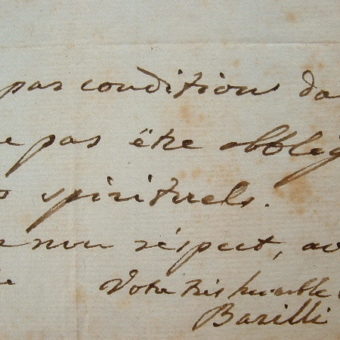 par conditions da
pas être obblig
spirituels.
mon réspect, av
Votre tris humble
Barilli